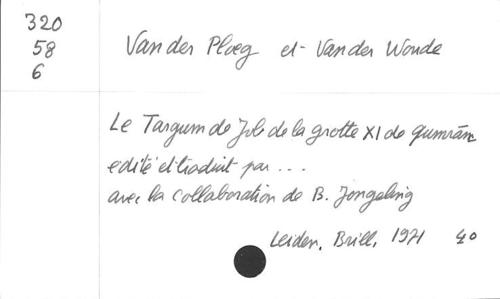 320
58
6
Van der Ploeg et Van der Woude
Le Targum de Job de la grotte XI de qumrân
edité et traduit par ...
avec la collaboration de B. Jongeling
Leiden, Brill, 1971 40